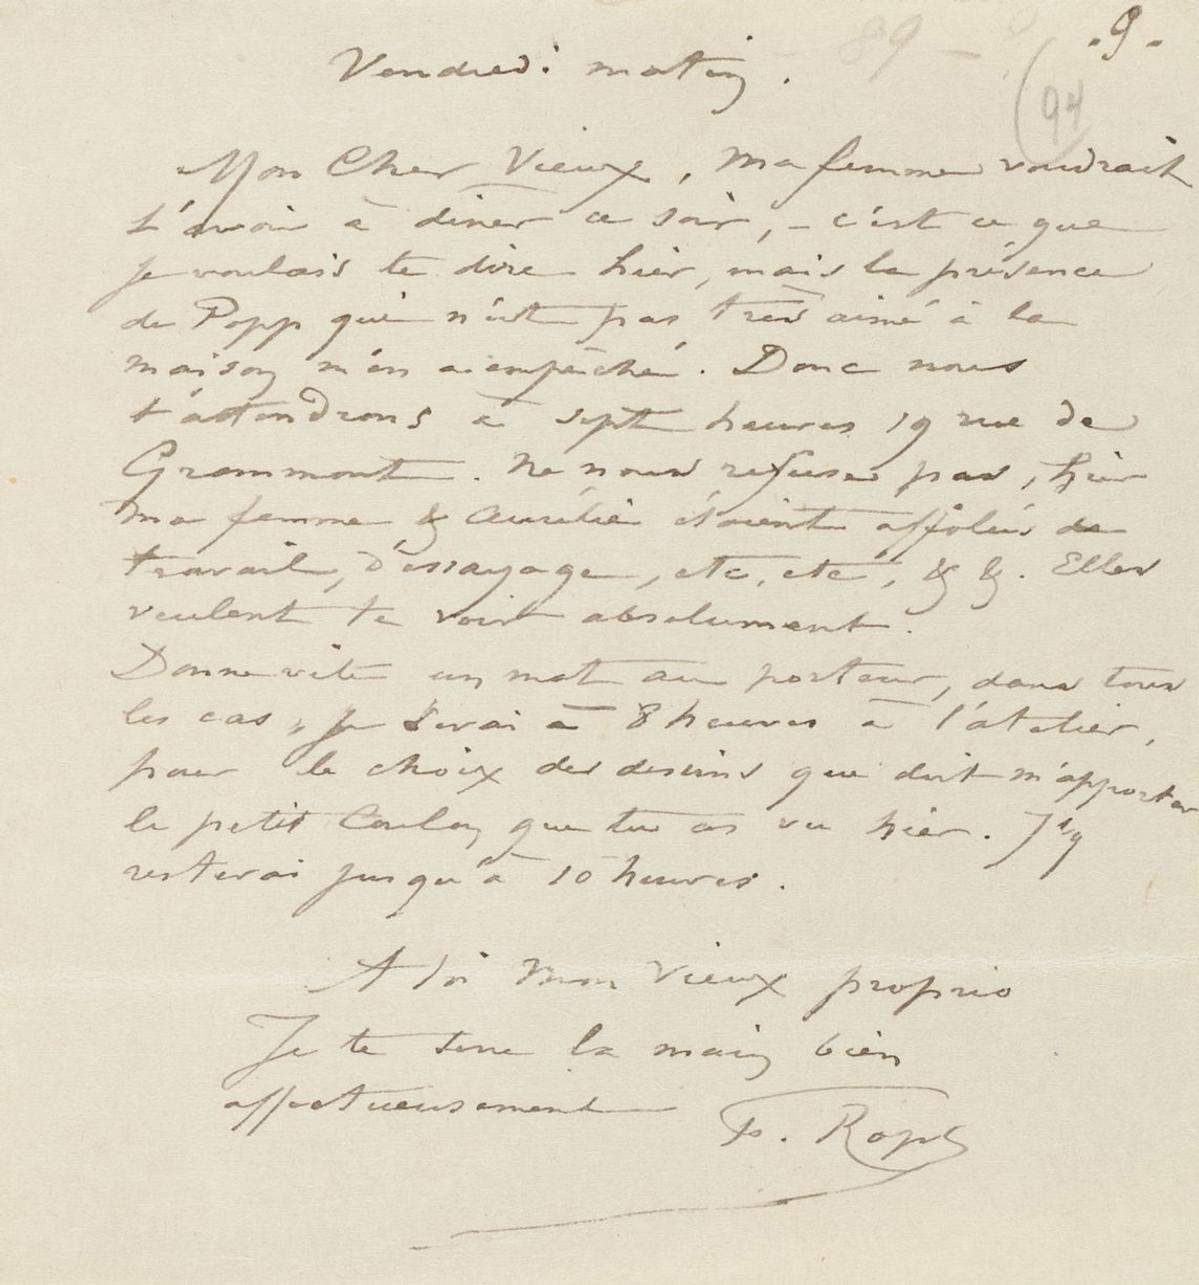 89 -
. 9 .
(94
Vendredi matin .
Mon Cher Vieux, Ma femme voudrait
t'avoir à diner ce soir, – c'est ce que
je voulais te dire hier, mais la présence
de Popp qui n'est pas très aimé à la
maison m'en a empêché. Donc nous
t'attendrons à sept heures 19 rue de
Grammont. Ne nous refuse pas, hier
ma femme & Aurélie étaient affolées de
travail, d'essayage, etc, etc, & &. Elles
veulent te voir absolument.
Donne vite un mot au porteur, dans tous
les cas, Je serai à 8 heures à l'atelier,
pour le choix des dessins que doit m'apporter
le petit Coulon que tu as vu hier. J'y
resterai jusqu'à 10 heures.
A toi Mon Vieux proprio
Je te serre la main bien
affectueusement F. Rops